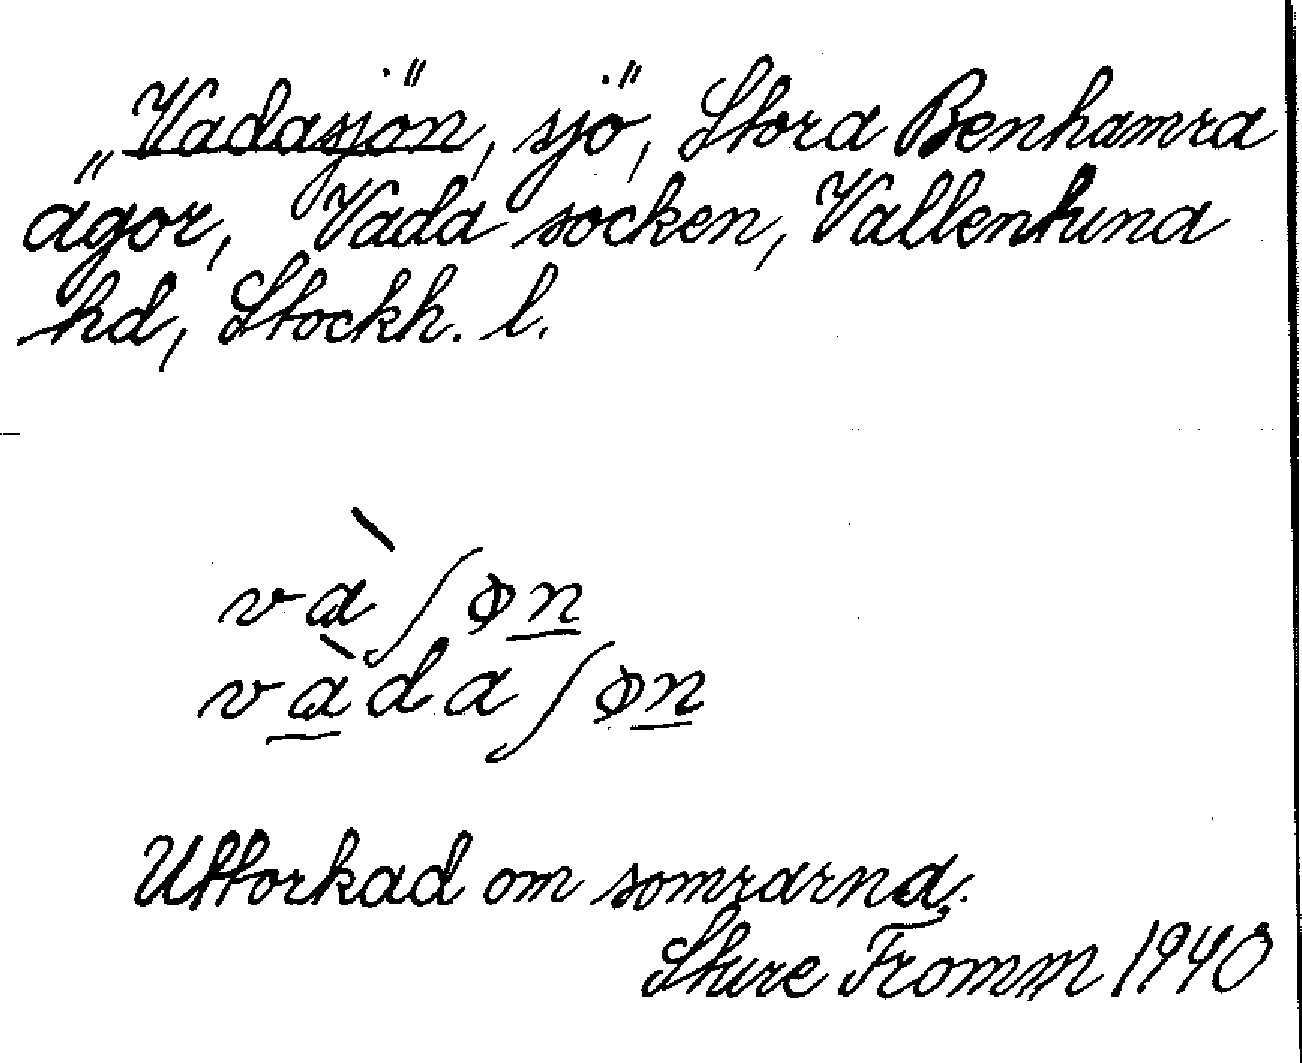 Vadasjön, sjö, Stora Benhamra
ägor, Vada socken, Vallentuna
hd, Stockh. l.
và ʃɵn
vàdaʃɵn
Uttorkad om somrarna.
Sture Fromm 1940